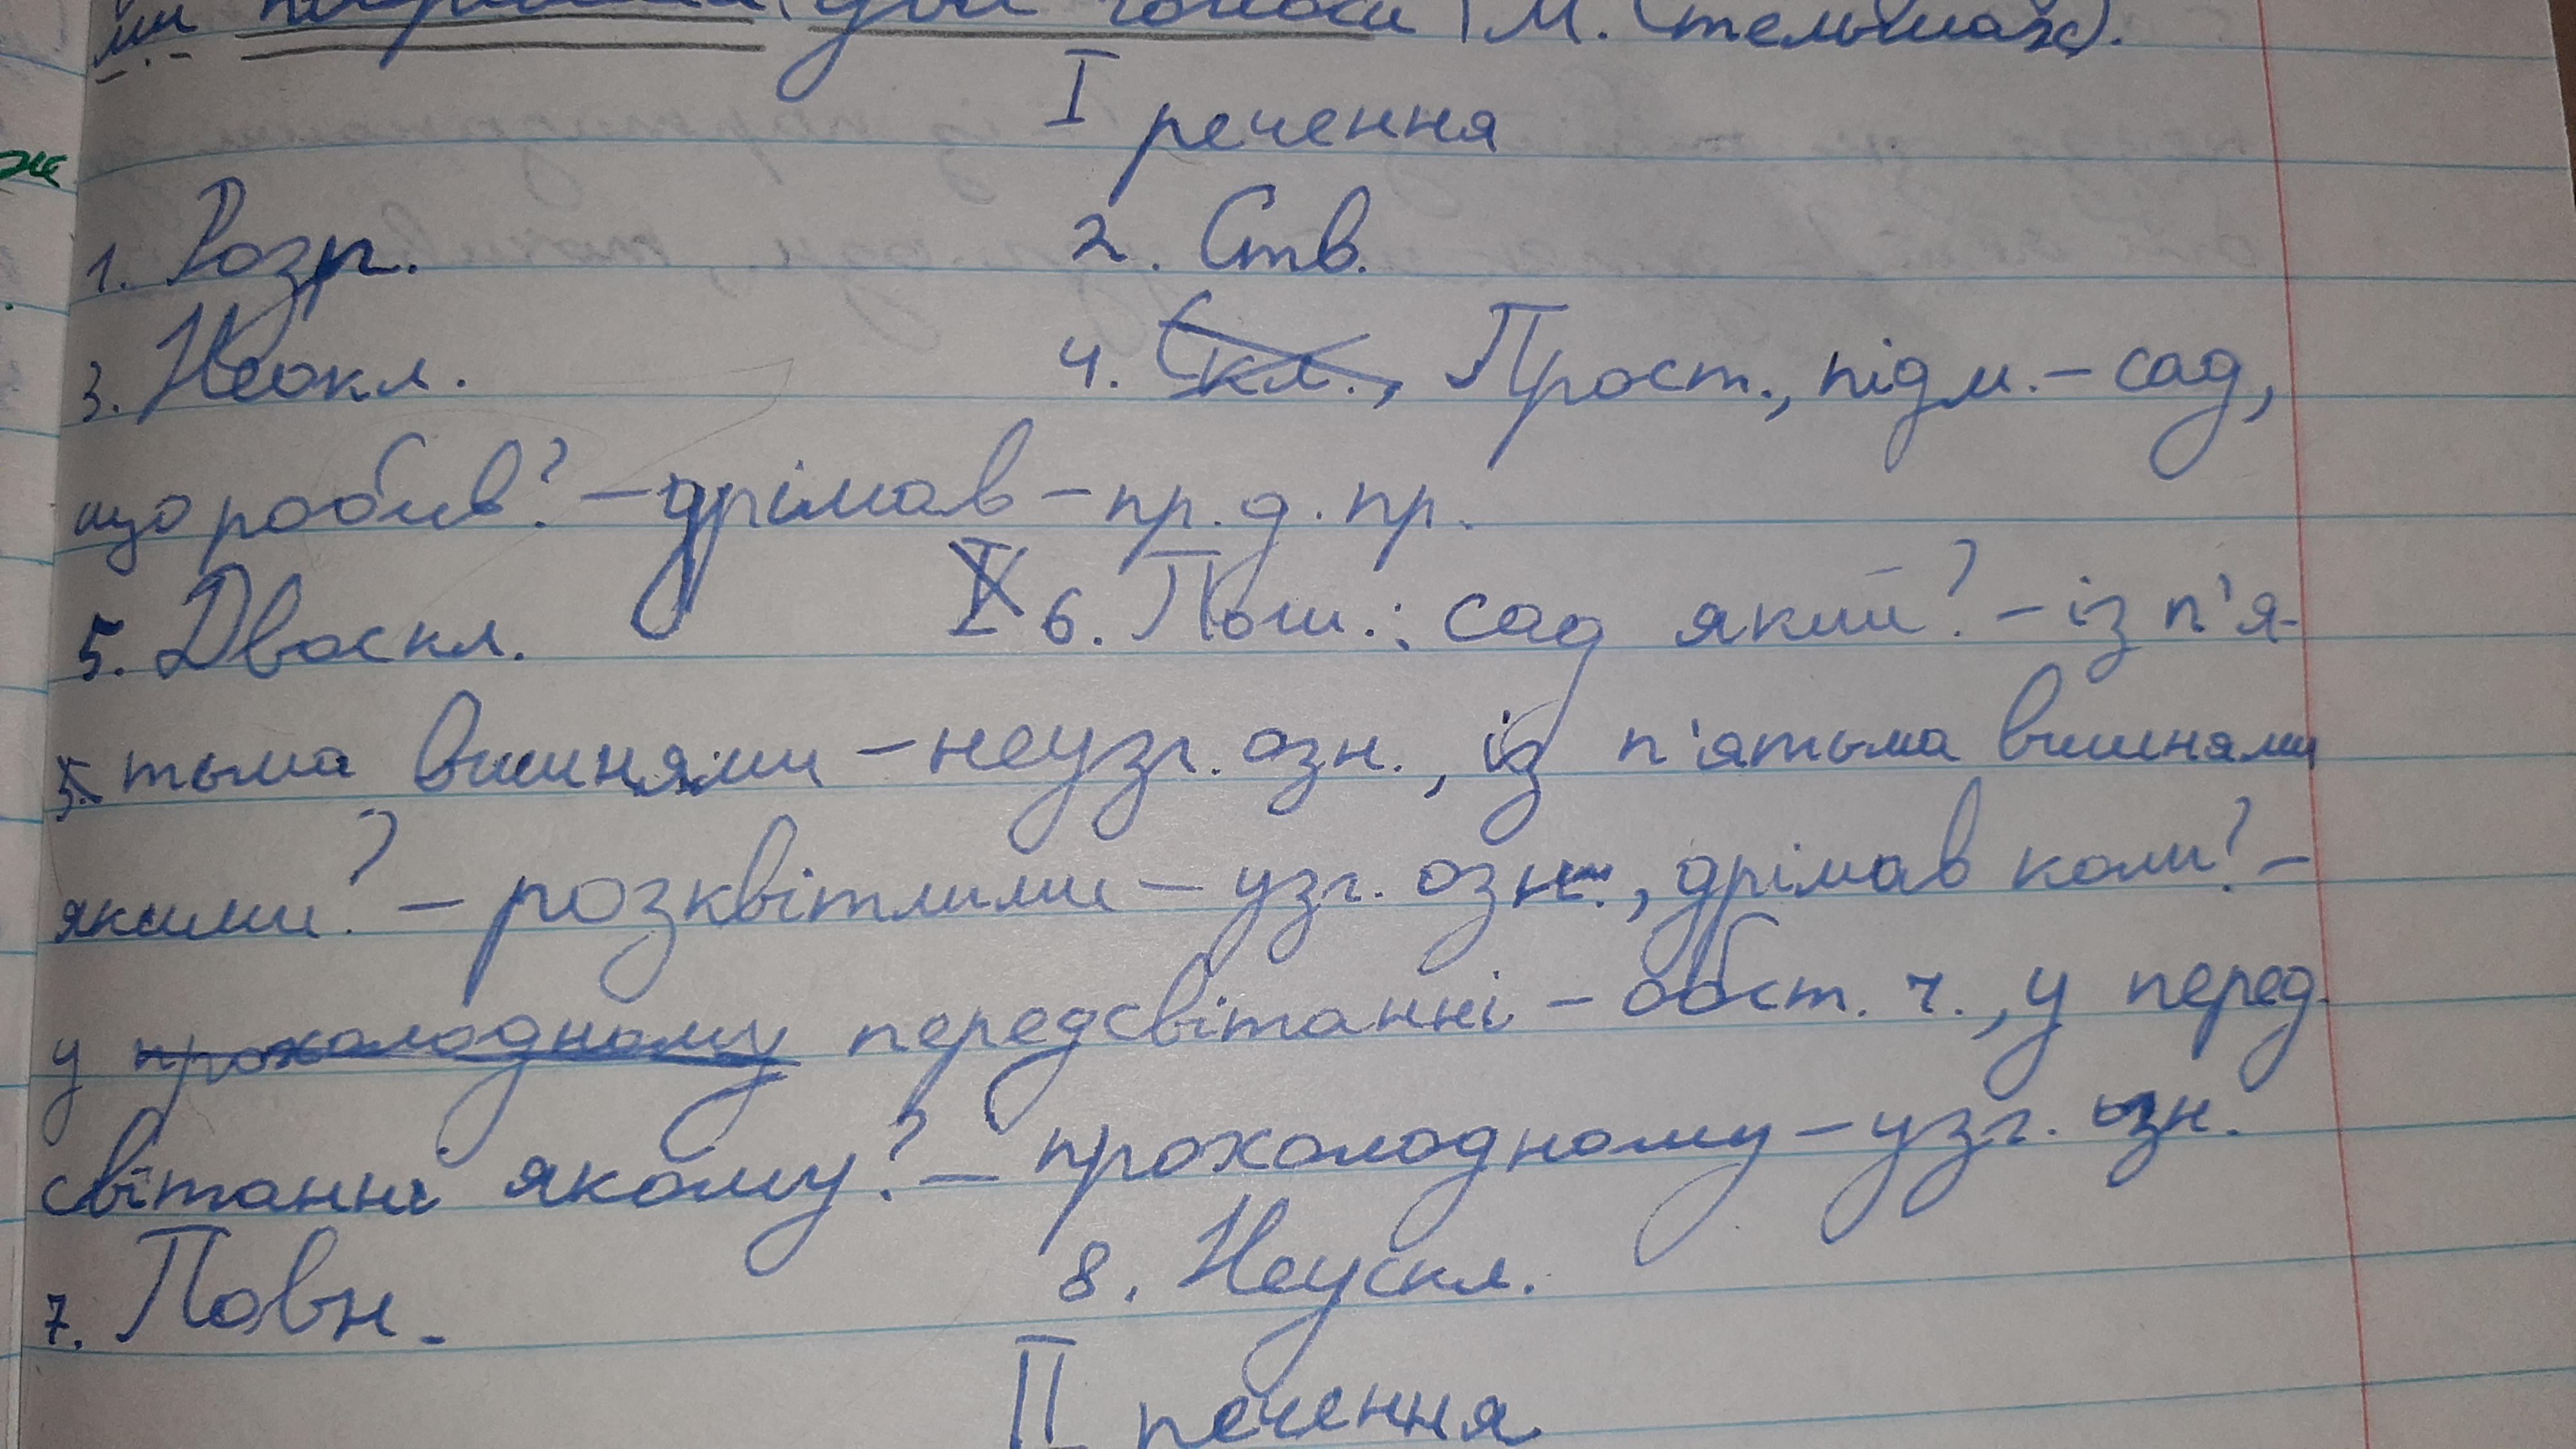 ми два голоси (М. Стельмах).
I речення
1. Розп. 2. Ств.
3. Неокл. 4. Скл., Прост., підм. – сад,
що робив? – дрімав – пр. д. пр.
5. Двоскл. I 6. Пош.: сад який? – із п'я-
5. тьма вишнями – неузг. озн., із п'ятьма вишнями
якими? – розквітлими – узг. озн., дрімав коли? –
у прохолодному передсвітанні – обст. ч., у перед-
світанні якому? – прохолодному – узг. озн.
7. Повн. 8. Неускл.
II речення